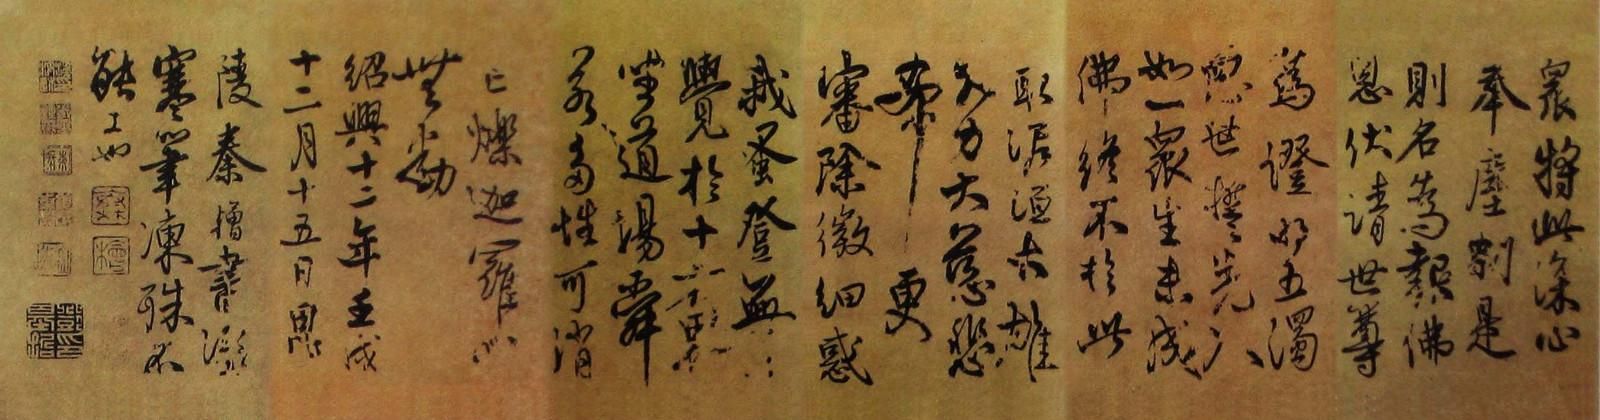 衆將此深心
奉塵刹是
則名為報佛
恩伏請世尊
為證明五濁
惡世誓先入
如一衆生未成
佛終不於此
取泥洹大雄
大力大慈悲
希更
審除微細惑
我蚤登無上
覺於十方界
坐道場舜
若多性可消
亡爍迦羅心
無動
紹興十二年壬戌
十二月十五日思
陵秦檜書
寒筆凍殊不
能工也
秦
檜